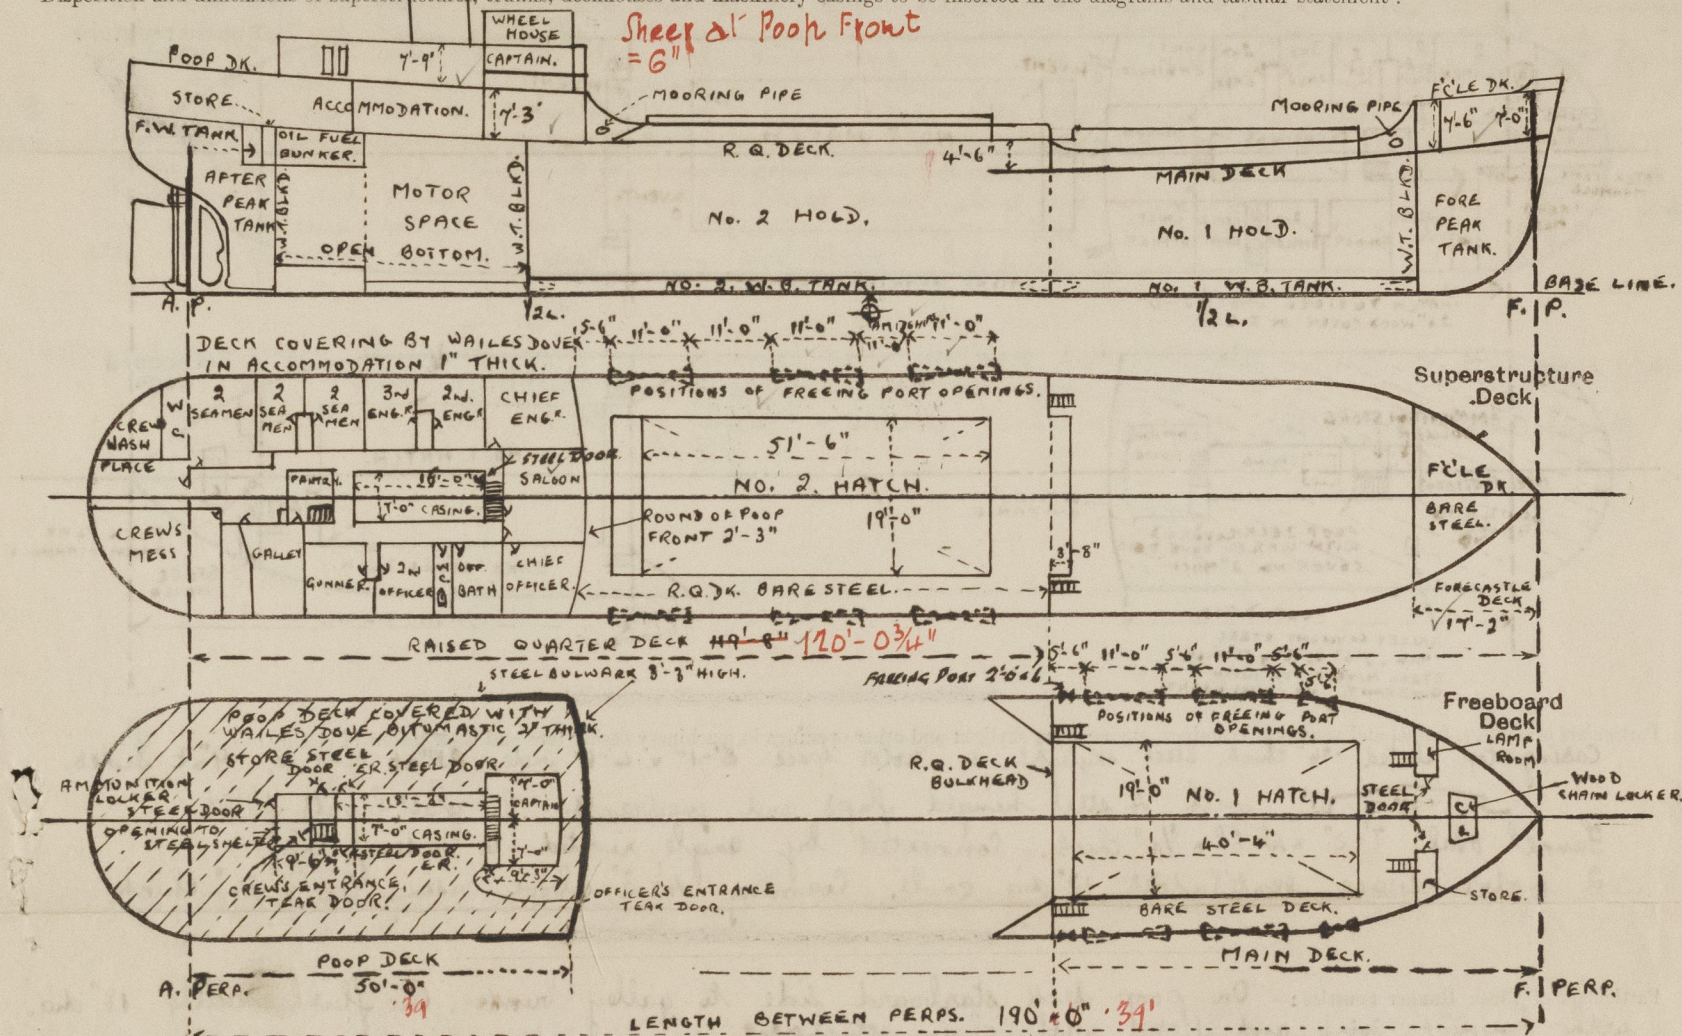 Disposition and dimensions of superstructures, trunks, deckhouses and machinery casings to be inserted in the diagrams and tabular statement :
Sheer at Poop Front
= 6"
WHEEL
HOUSE
CAPTAIN.
7'-9"
POOP DK.
STORE.
ACCOMMODATION.
7'-3"
MOORING PIPE
MOORING PIPE
F'C'LE DK.
7'-6"
7'-0"
F.W. TANK
OIL FUEL
BUNKER.
R.Q. DECK.
4'-6"
MAIN DECK
AFTER
PEAK
TANK
W.T. BLKD.
MOTOR
SPACE
OPEN BOTTOM.
W.T. BLKD.
No. 2 HOLD.
No. 1 HOLD.
W.T. BLKD.
FORE
PEAK
TANK.
NO. 2. W.B. TANK.
No. 1 W.B. TANK.
BASE LINE.
A. P.
1/2 L.
1/2 L.
F. P.
DECK COVERING BY WAILES DOVE
IN ACCOMMODATION 1" THICK.
5'-6" 11'-0" 11'-0" 11'-0" 11'-0" 11'-0"
POSITIONS OF FREEING PORT OPENINGS.
Superstructure
Deck
CREW
WASH
PLACE
W
C
2
SEAMEN
2
SEA
MEN
2
SEA
MEN
3rd
ENGR.
2nd.
ENGR
CHIEF
ENGR.
STEEL DOOR
SALOON
PANTRY.
16'-0"
7'-0" CASING.
51'-6"
NO. 2. HATCH.
19'-0"
ROUND OF POOP
FRONT 2'-3"
F'C'LE
DK.
BARE
STEEL.
CREWS
MESS
GALLEY
GUNNER.
2nd
OFFICER
W
C
OFF.
BATH
CHIEF
OFFICER.
R.Q. DK. BARE STEEL.
3'-8"
FORECASTLE
DECK
17'-2"
RAISED QUARTER DECK 119'-8" 120'-0¾"
STEEL BULWARK 3'-3" HIGH.
FREEING PORT
5'-6" 11'-0" 5'-6" 11'-0" 5'-6"
5'-6"
POSITIONS OF FREEING PORT
OPENINGS.
Freeboard
Deck
POOP DECK COVERED WITH
WAILES DOVE BITUMASTIC 2" THICK.
STORE STEEL
DOOR
E.R. STEEL DOOR.
AMMUNITION
LOCKER
STEEL DOOR
OPENING TO
STEEL SHELTER
7'-0"
CAPTAIN
7'-0"
7'-0" CASING.
9'-6"
STEEL DOOR
E.R.
9'-3"
CREW'S ENTRANCE,
TEAK DOOR.
OFFICER'S ENTRANCE
TEAK DOOR.
R.Q. DECK
BULKHEAD
19'-0"
No. 1 HATCH.
40'-4"
STEEL
DOOR
LAMP
ROOM
WOOD
CHAIN LOCKER.
STORE.
BARE STEEL DECK.
MAIN DECK.
POOP DECK
50'-0"
.39
A. PERP.
F. PERP.
LENGTH BETWEEN PERPS. 190'-0" .39'